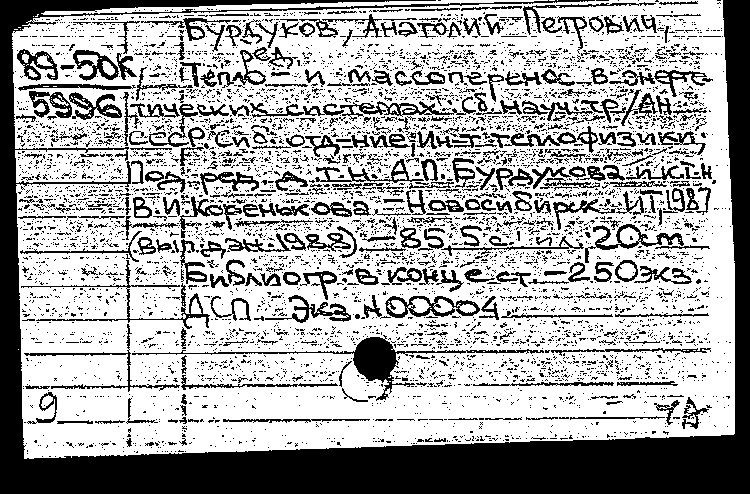 Бурдуков, Анатолий Петрович,
ред.
89-50К
5996
Тепло- и массоперенос в энерге-
тических системах: Сб. науч. тр/АН
СССР. Сиб. отд-ние, Ин-т теплофизики;
Под ред. д.т.н. А.П. Бурдукова и к.т.н.
В.И. Коренькова. - Новосибирск: ИТ, 1987
(вып. дан. 1988) - 85,5 с: ил; 20 см.
Библиогр. в конце ст. - 250 экз.
ДСП. Экз. N 00004.
9